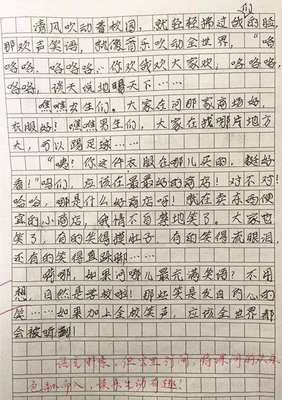 清风吹动着校园，就轻轻拂过我们的脸
那欢声笑语，就像音乐吹动全世界。“哈
哈哈，哈哈哈，你欢我欢大家欢，哈哈哈，哈
哈哈，谈天说地聊天下……
瞧瞧女生们。大家在问那家商场好，
衣服好！瞧瞧男生们，大家在找哪片地方
大，可以踢足球……
“嘿！你这件衣服在哪儿买的，挺好
看！”“呜们，应该在最最好的商店！对不对！
哈哈，哪是什么好商店呀！就在卖东西便
宜的小商店，我情不自禁地笑了。大家也
笑了，有的笑得摸肚子，有的笑得流眼泪，
还有的笑得直跺脚……
嗨哪，如果问哪儿最充满笑语？不用
想，自然是学校啦！那好笑是发自内心的
笑……如果加上全校笑声，应该全世界都
会被听到！